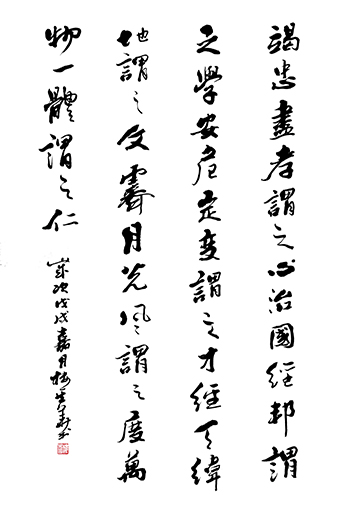 竭忠盡孝謂之心治國經邦謂
之學安危定變謂之才經天緯
地謂之文霽月光風謂之度萬
物一體謂之仁
歲次戊戌嘉月